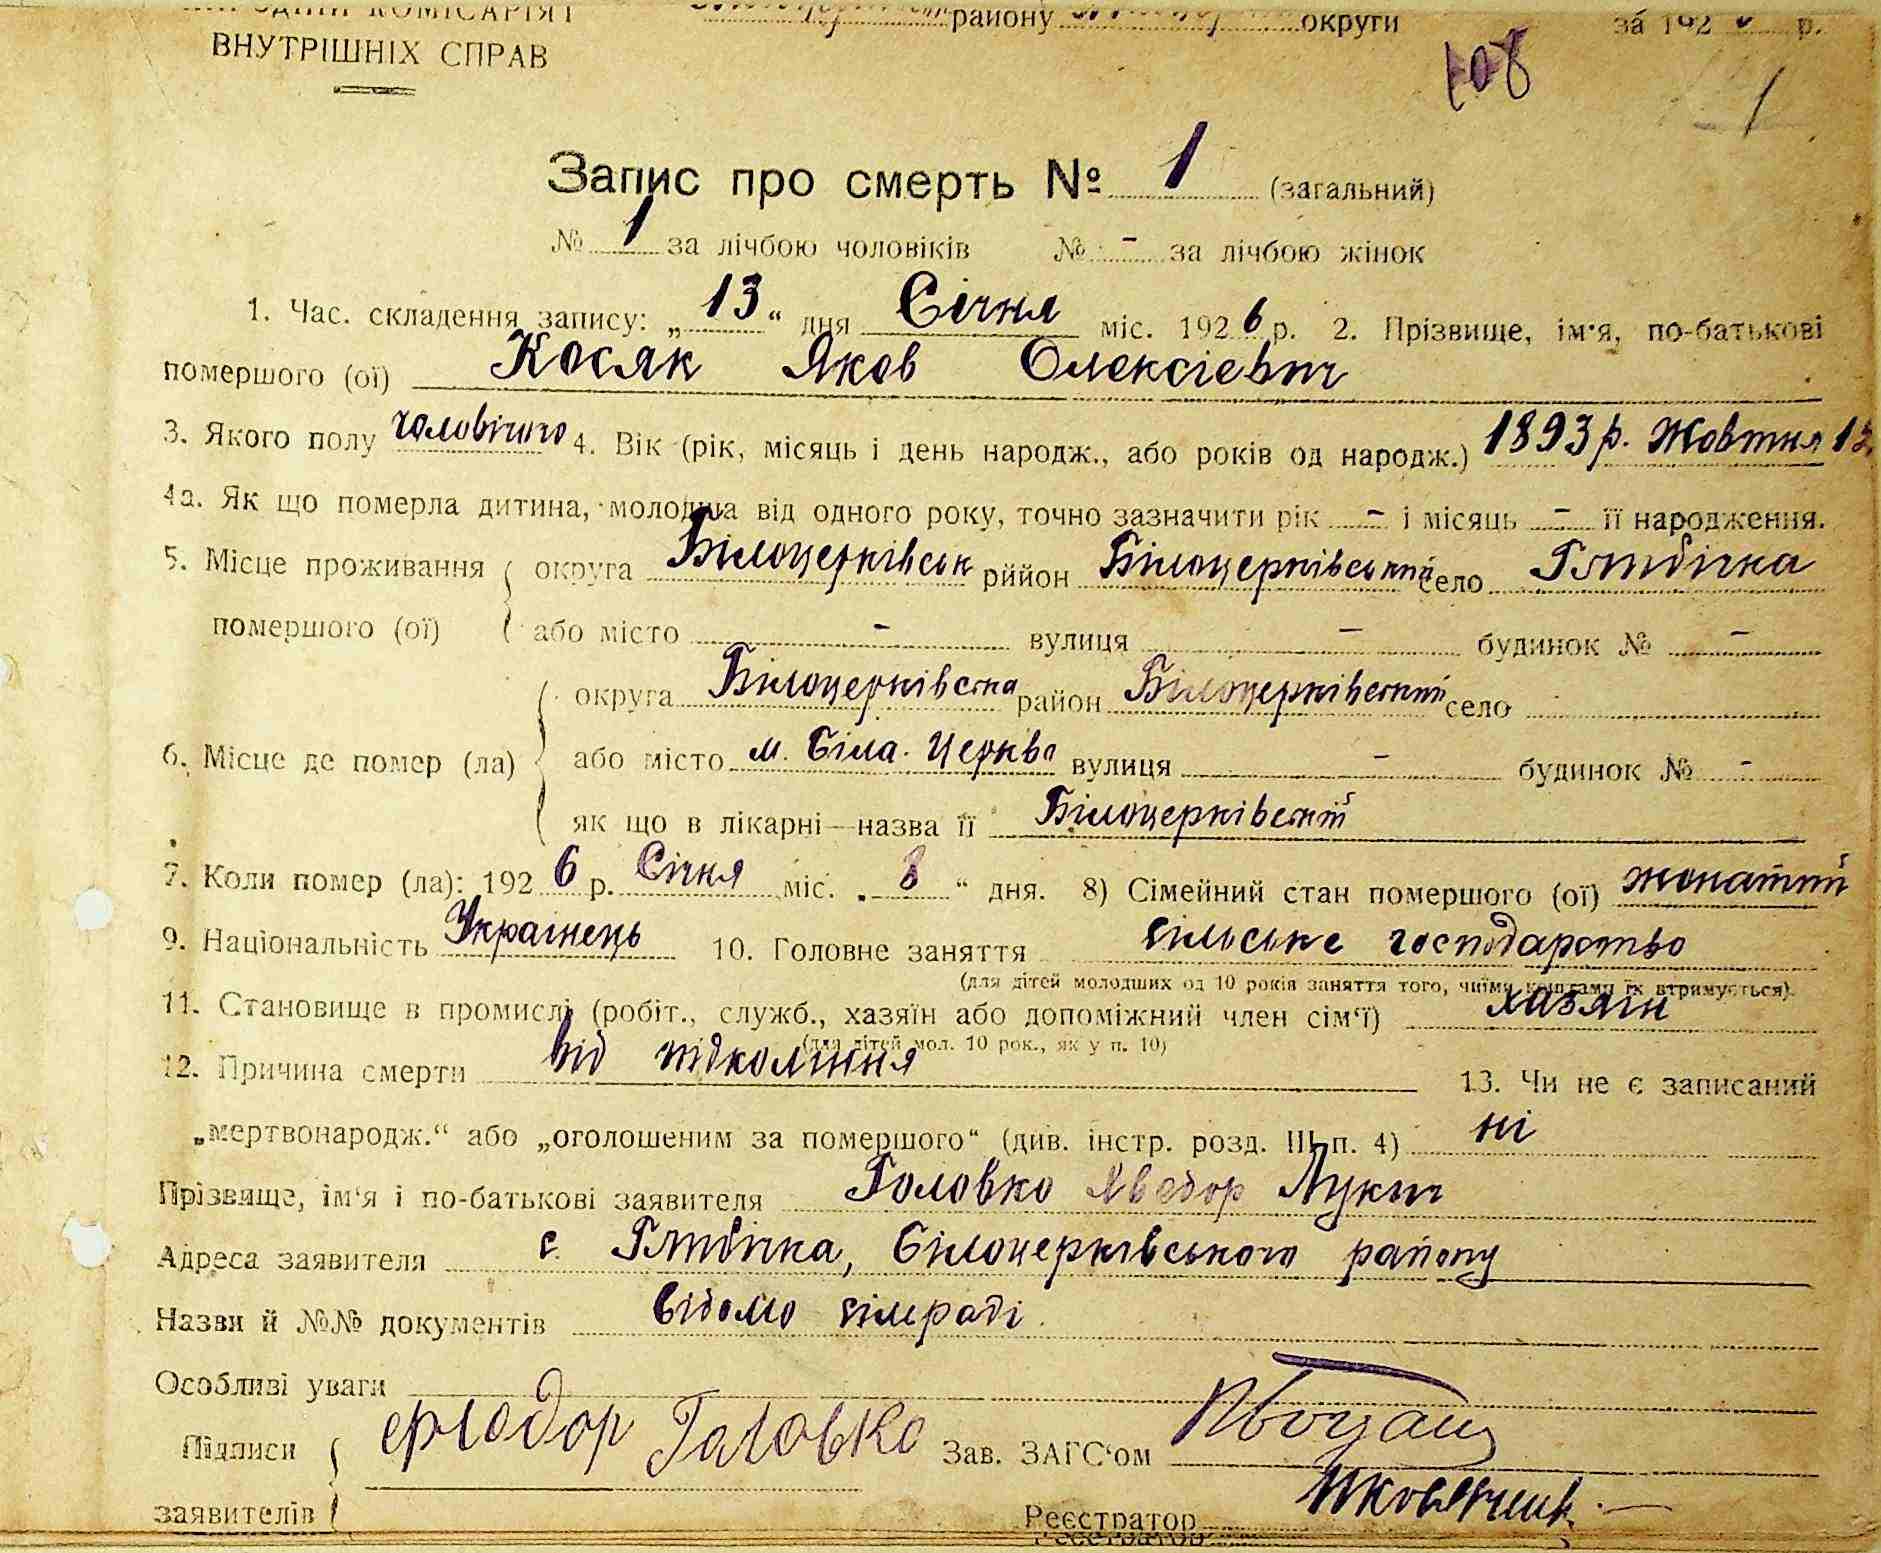 НАРОДНІЙ КОМІСАРІЯТ району округи за 192 р.
ВНУТРІШНІХ СПРАВ
108
1
Запис про смерть № 1 (загальний)
№ 1 за лічбою чоловіків № - за лічбою жінок
1. Час. складення запису: „13“ дня Січня міс. 1926 р. 2. Прізвище, ім'я, по-батькові
помершого (ої) Косяк Яков Олексієвич
3. Якого полу чоловічого 4. Вік (рік, місяць і день народж., або років од народж.) 1893 р. Жовтня
4а. Як що померла дитина, молодша від одного року, точно зазначити рік - і місяць - її народження.
5. Місце проживання округа Білоцерківськ рййон Білоцерківський село Глибічка
помершого (ої) або місто - вулиця - будинок № -
округа Білоцерківська район Білоцерківський село
6. Місце де помер (ла) або місто м. Біла. Церква вулиця - будинок № -
як що в лікарні—назва її Білоцерківскій
7. Коли помер (ла): 1926 р. Січня міс. „8“ дня. 8) Сімейний стан помершого (ої) жонатий
9. Національність Українець 10. Головне заняття сільське господарство
(для дітей молодших од 10 років заняття того, чиїми коштами їх втримується).
11. Становище в промислі (робіт., служб., хазяїн або допоміжний член сім'ї) хазяін
(для дітей мол. 10 рок., як у п. 10)
12. Причина смерти від підколиння 13. Чи не є записаний
„мертвонародж.“ або „оголошеним за помершого“ (див. інстр. розд. III п. 4) ні
Прізвище, ім'я і по-батькові заявителя Головко Хведор Лукич
Адреса заявителя с. Глибічка, Білоцерківського району
Назви й №№ документів відомо сілраді.
Особливі уваги
Підписи Федор Головко Зав. ЗАГС'ом
заявителів Реєстратор